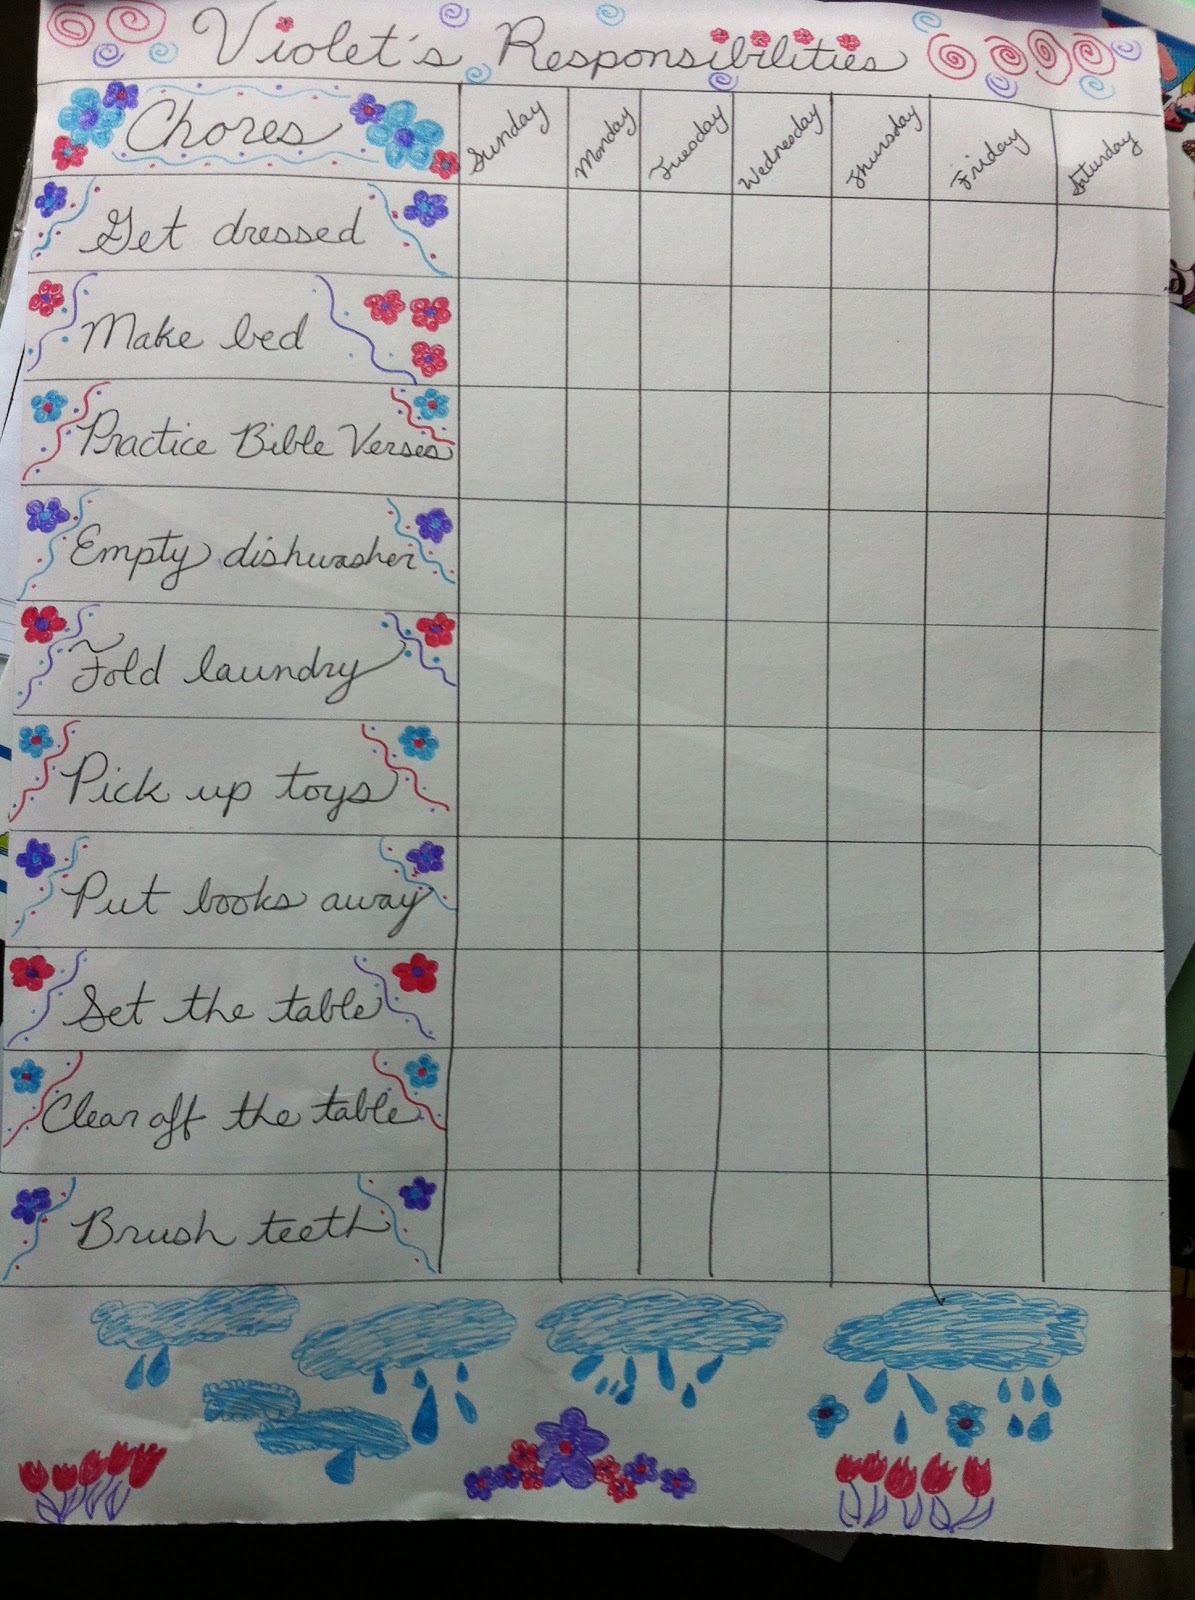 Violet's Responsibilities
Chores Sunday Monday Tuesday Wednesday Thursday Friday Saturday
Get dressed
Make bed
Practice Bible Verses
Empty dishwasher
Fold laundry
Pick up toys
Put books away
Set the table
Clear off the table
Brush teeth